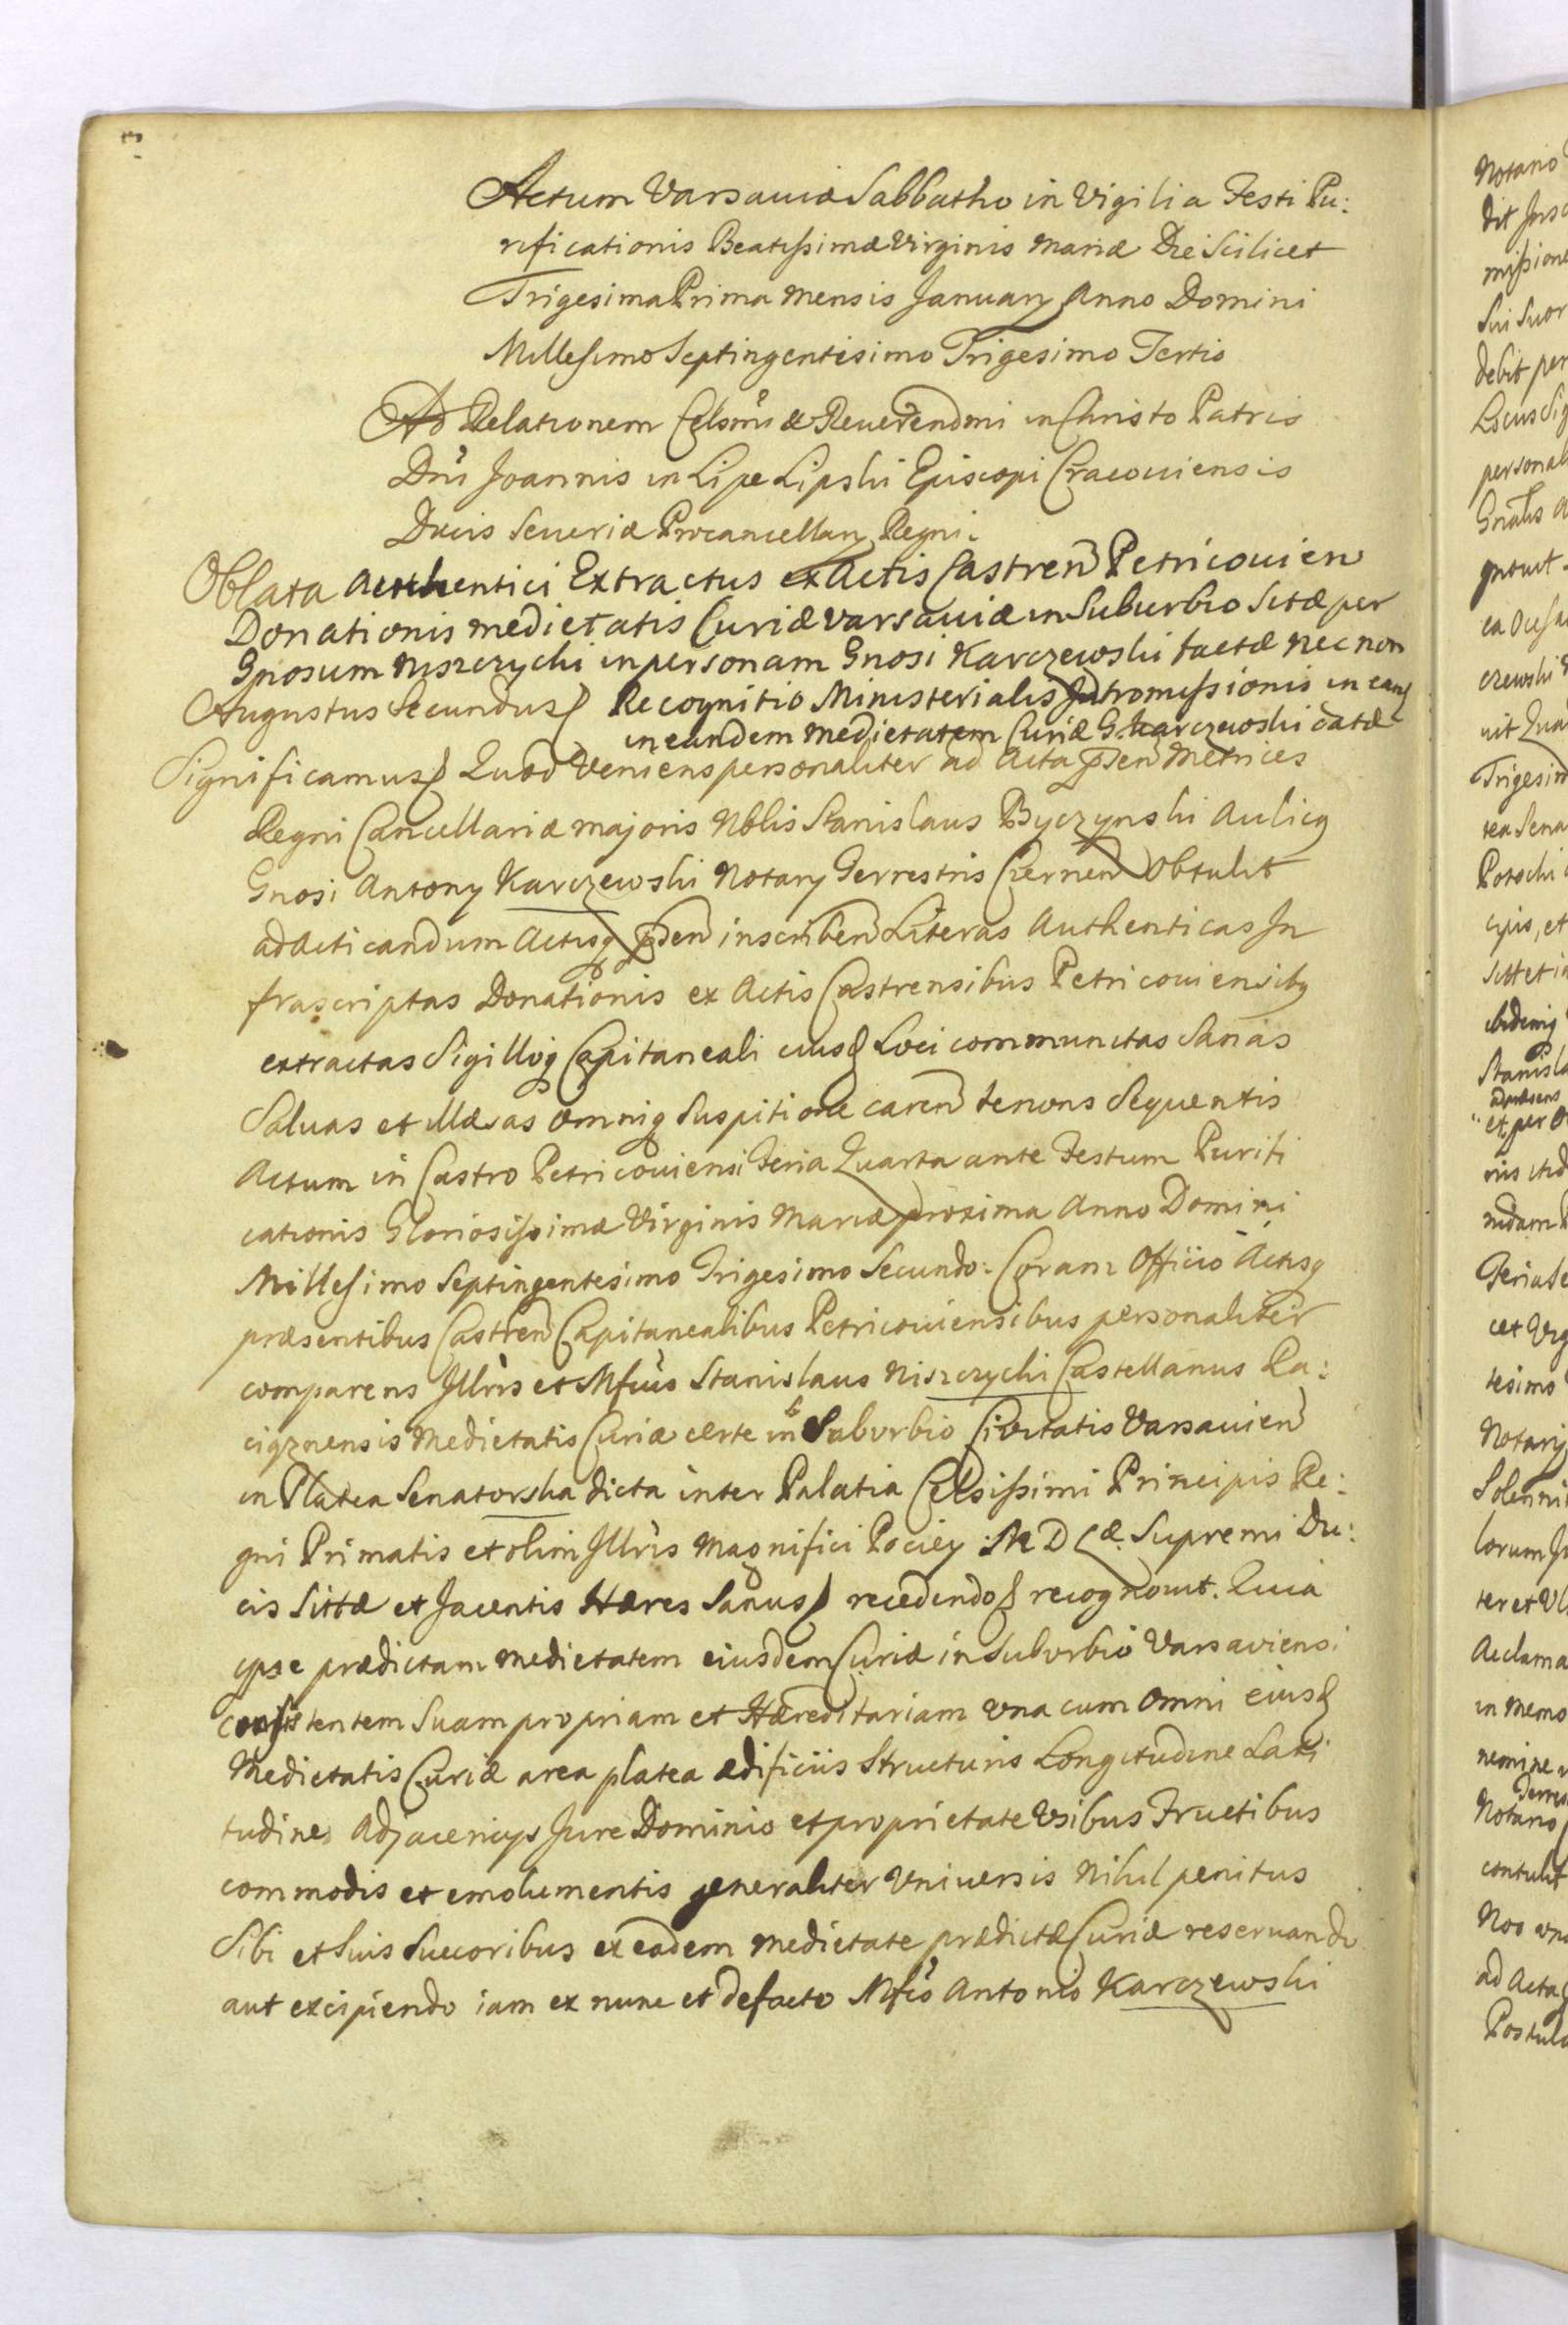 Actum Varsaviæ Sabbatho in Vigilia Festi Pu:
rificationis Beatissimæ Virginis Mariæ Die Scilicet
Trigesima Prima Mensis Januarÿ Anno Domini
Millesimo Septingentesimo Trigesimo Tertio
Ad Relationem Celsmi & Reverendmi in Christo Patris
Dni Joannis in Lipe Lipski Episcopi Cracoviensis
Ducis Severiæ Procancellarÿ Regni.
Oblata Authentici Extractus ex Actis Castren Petricovien
Donationis medietatis Curiæ Varsaviæ in Suburbio Sitæ per
Gnosum Niszczycki in personam Gnosi Karczewski factæ nec non
Augustus Secundus Recognitio Ministerialis Intromissionis in eand
in eandem medietatem Curiæ G. Karczewski datæ
Significamus Quod Veniens personaliter ad Acta pden Metrices
Regni Cancellariæ majoris Nblis Stanislaus Byczynski Aulicq
Gnosi Antonÿ Karczewski Notarÿ Terrestris Czernen Obtulit
ad Acticandum Actisq pden inscriben Literas Authenticas In
frascriptas Donationis ex Actis Castrensibus Petricoviensibq
extractas Sigilloq Capitaneali eiusd Loci communitas Sanas
Salvas et illæsas Omniq Suspitione caren tenoris Sequentis
Actum in Castro Petricoviensi Feria Quarta ante Festum Purifi
cationis Gloriosissimæ Virginis Mariæ proxima Anno Domini
Millesimo Septingentesimo Trigesimo Secundo. Coram Officio Actisq
præsentibus Castren Capitanealibus Petricoviensibus personaliter
comparens Illris et Mfcus Stanislaus Niszczycki Castellanus Ra:
ciąznensis Medietatis Curiæ certe in Suburbio Civitatis Varsavien
in Platea Senatorska dicta inter Palatia Celsissimi Principis Re:
gni Primatis et olim Illris Magnifici Pociey M D Læ. Supremi Du:
cis Sittæ et Jacentis Hæres Sanus recedendo recognovit. Quia
ipse prædictam medietatem eiusdem Curiæ in Suburbio Varsaviensi
consistentem Suam propriam et Hæreditariam una cum Omni eiusd
Medietatis Curiæ area platea ædificiis Structuris Longitudine Lati
tudine, Adjacencÿs Jure Dominio et proprietate Usibus Fructibus
commodis et emolumentis generaliter Universis Nihil penitus
Sibi et Suis Succoribus ex eadem medietate prædictæ Curiæ reservando
aut excipiendo iam ex nunc et de facto Mfco Antonio Karczewski